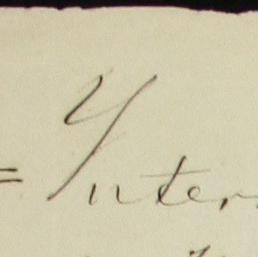 = Inter